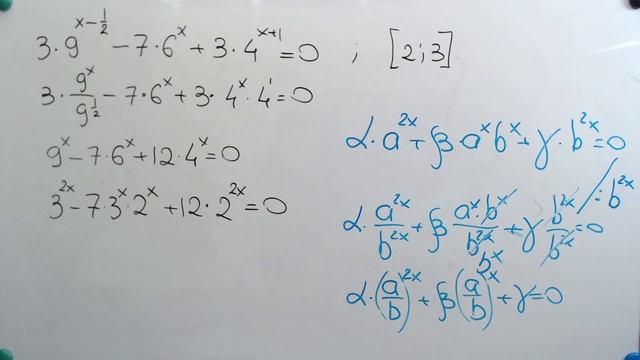 3·9^(x-1/2) - 7·6^x + 3·4^(x+1) = 0 ; [2;3]
3·9^x/9^(1/2) - 7·6^x + 3·4^x·4^1 = 0
9^x - 7·6^x + 12·4^x = 0
3^(2x) - 7·3^x·2^x + 12·2^(2x) = 0
α·a^(2x) + β·a^x b^x + γ·b^(2x) = 0 / : b^(2x)
α·a^(2x)/b^(2x) + β a^x·b^x/b^(2x) + γ b^(2x)/b^(2x) = 0
b^x
α·(a/b)^(2x) + β(a/b)^x + γ = 0